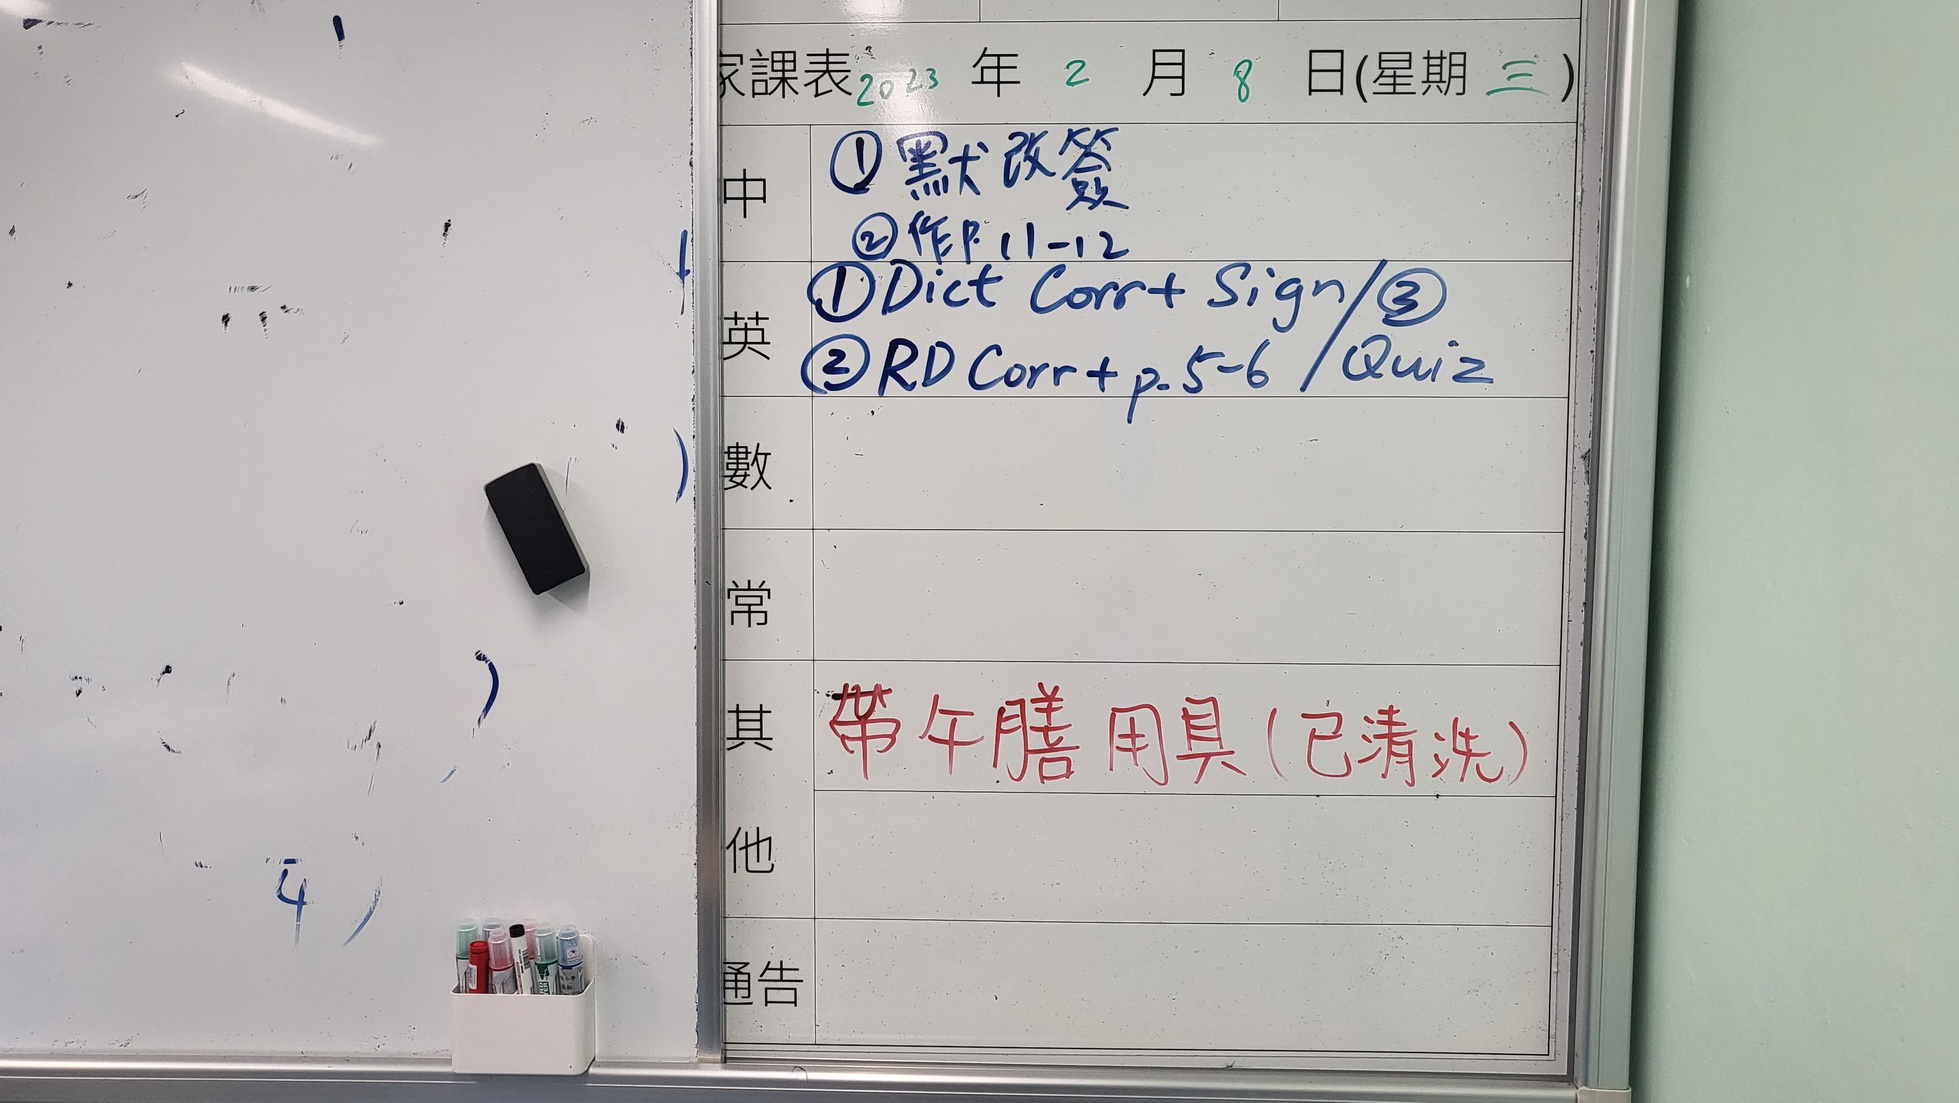 家課表 2023 年 2 月 8 日(星期 三)
中
① 默改簽
② 作P.11-12
英
① Dict Corr + Sign / ③
② RD Corr + p.5-6 / Quiz
數
常
其他
帶午膳用具(已清洗)
通告
4